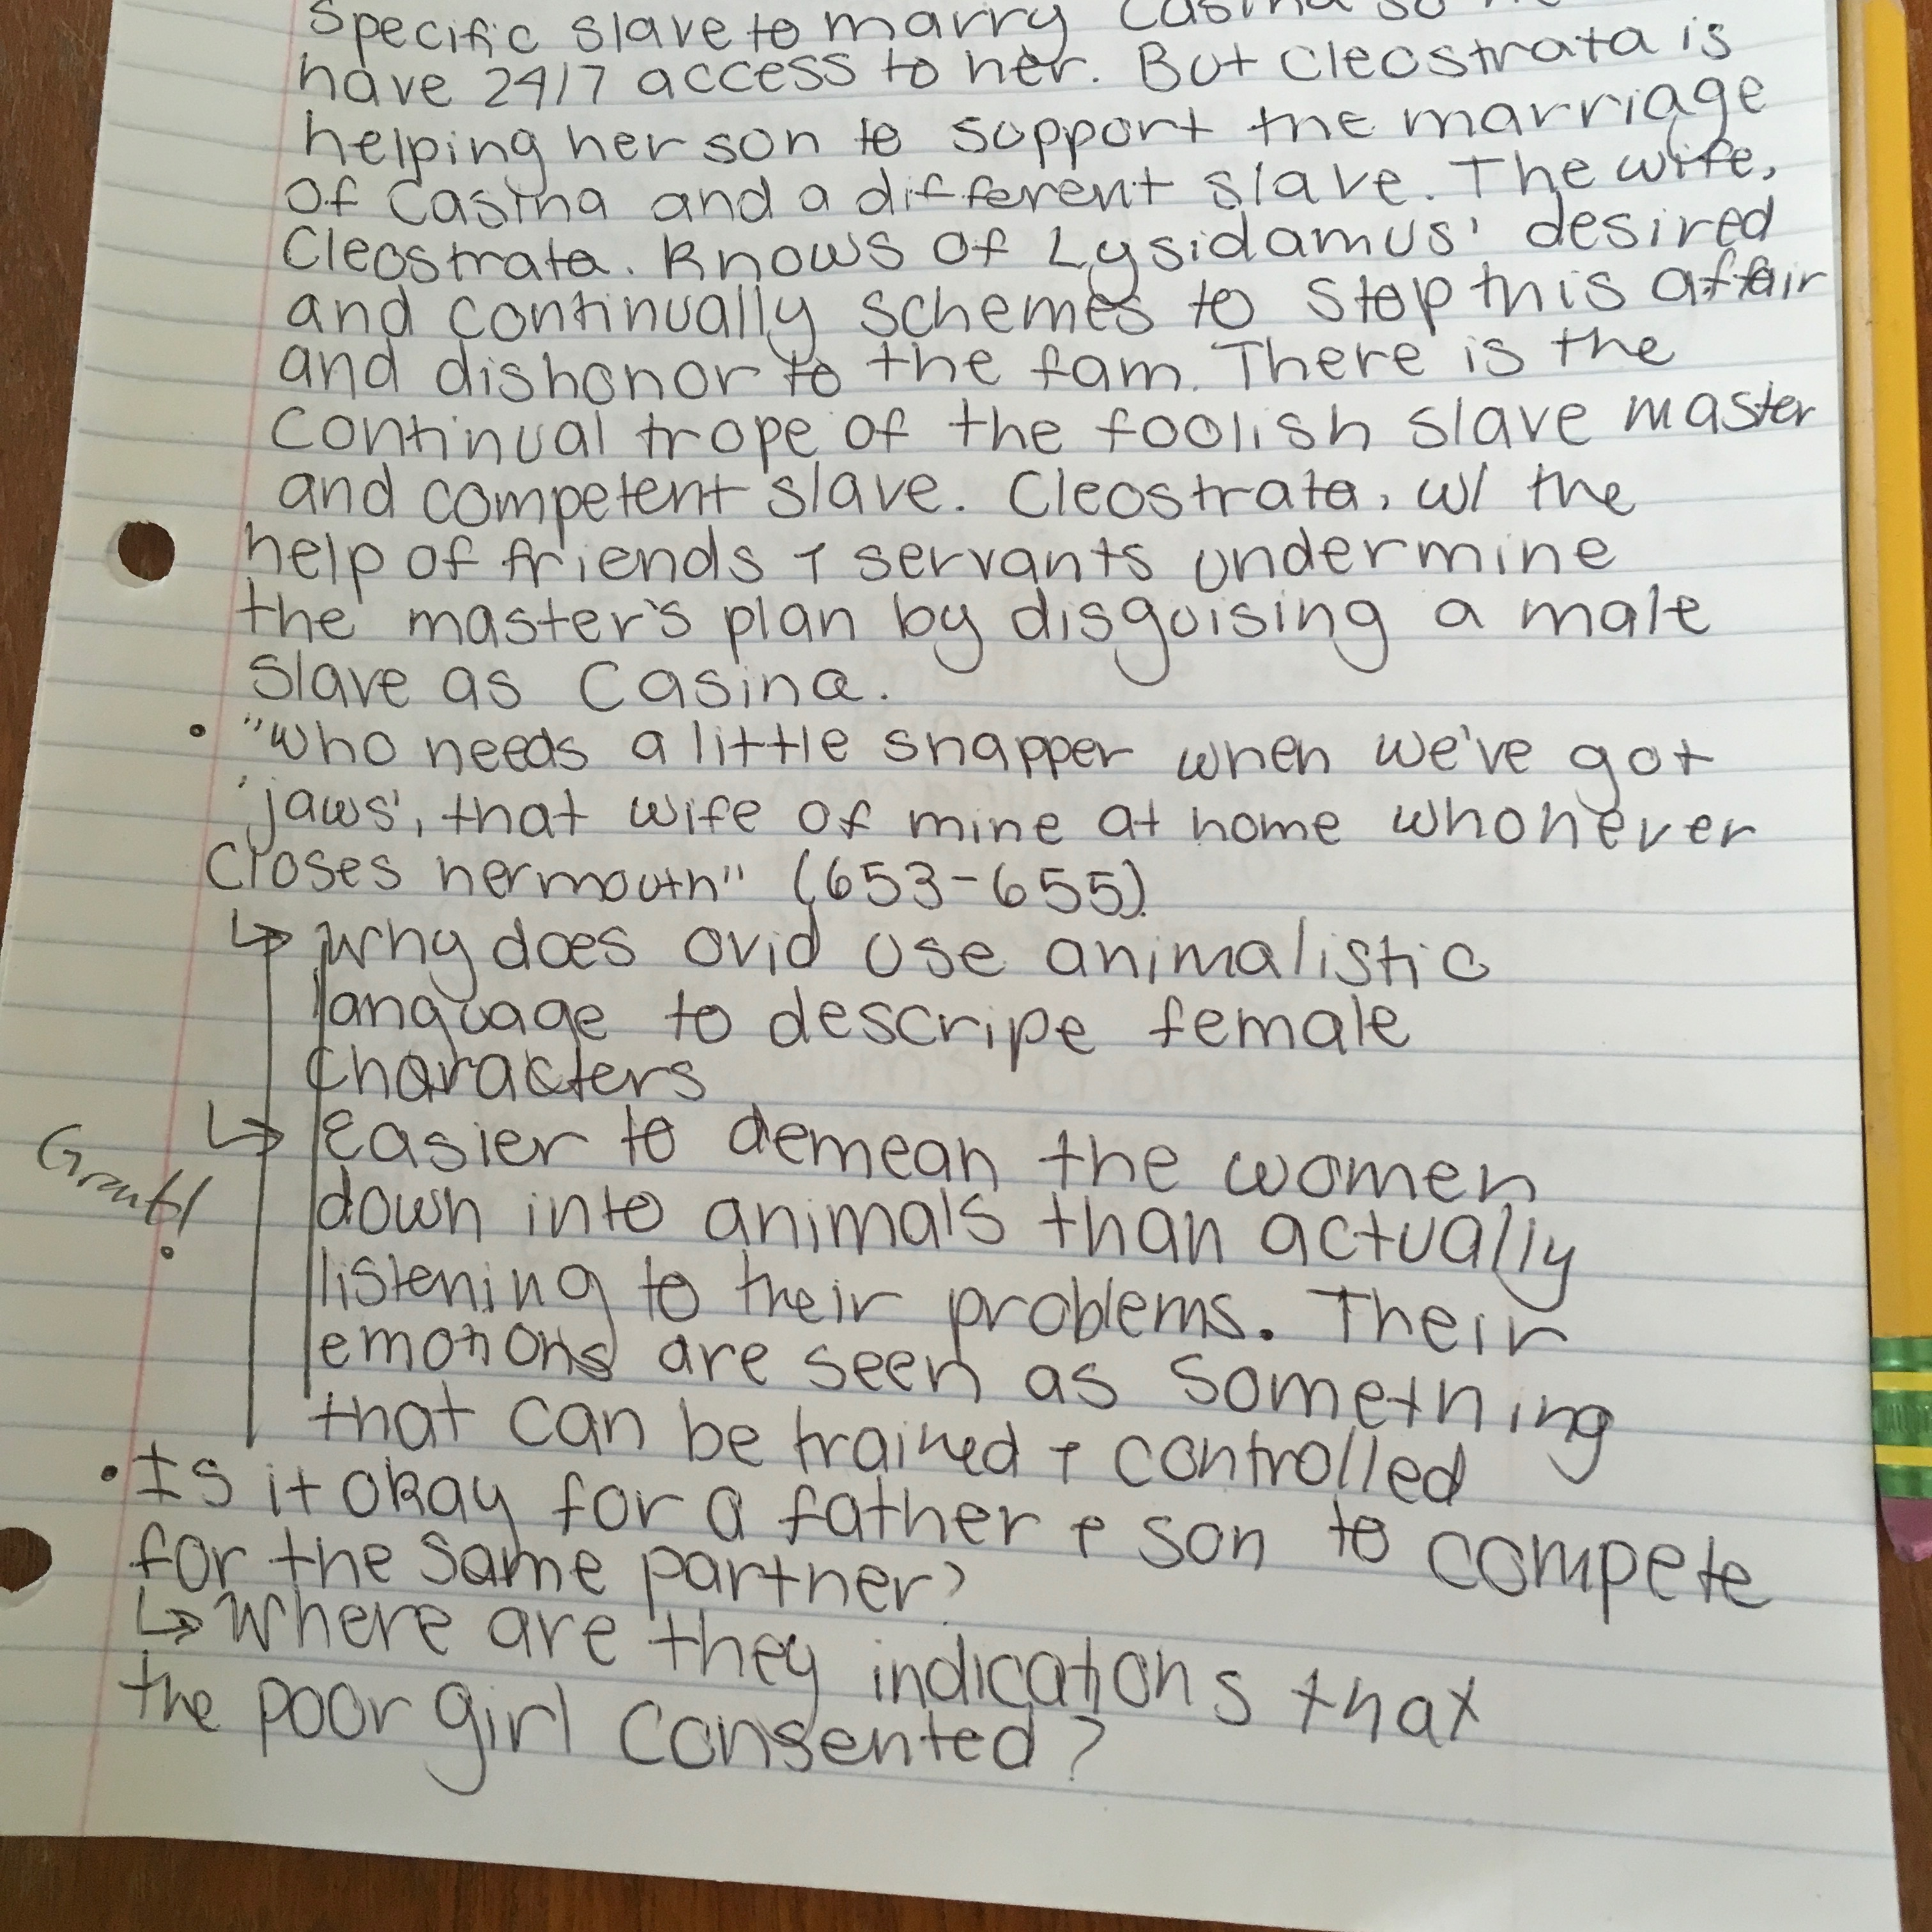 specific slave to marry Casina so
have 24/7 access to her. But Cleostrata is
helping her son to support the marriage
of Casina and a different slave. The wife,
Cleostrata. Knows of Lysidamus' desired
and continually schemes to stop this affair
and dishonor to the fam. There is the
continual trope of the foolish slave master
and competent slave. Cleostrata, w/ the
help of friends + servants undermine
the master's plan by disguising a male
slave as Casina.
• "who needs a little snapper when we've got
'jaws', that wife of mine at home who never
closes her mouth" (653-655)
↳ Why does ovid use animalistic
language to descripe female
characters
↳ easier to demean the women
down into animals than actually
Great!
listening to their problems. Their
emotions are seen as something
that can be trained + controlled
• Is it okay for a father + son to compete
for the same partner?
↳ Where are they indications that
the poor girl consented?